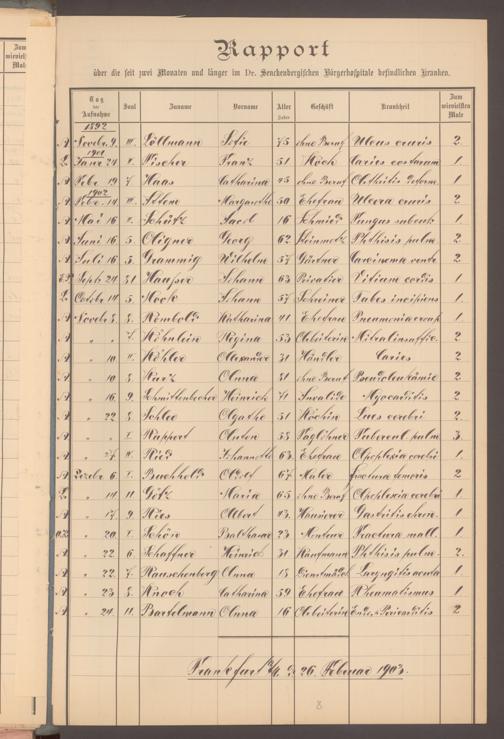 Zum
wievielten
Male
Rapport
über die seit zwei Monaten und länger im Dr. Senckenbergischen Bürgerhospitale befindlichen Kranken.
Tag der Aufnahme Saal Zuname Vorname Alter Jahre Geschäft Krankheit Zum wievielten Male
1892
A Novbr. 9. III. Löllmann Sofie 75 ohne Beruf Ulcus cruris 2.
1901
Januar 24 Fischer Franz 51 Koch Caries costarum 1.
A Febr. 19 7. Haas Catharina 45 ohne Beruf 1.
1902
A Febr. 14 III. Margarethe 50 Ehefrau Ulcera cruris 2.
A Mai 16 Schütz Jacob 16 Schmied Fungus 1.
A Juni 16 5. Georg 62 Steinmetz Phthisis pulm. 2.
A Juli 16 5. Grammig Wilhelm 57 Gärtner Carcinoma 2.
Septr. 24 Johann 63 Privatier Vitium cordis 1.
Octobr. 14 5. Johann 57 Schreiner Tabes incipiens 1.
A Novbr. 3. 8. Katharina 41 Ehefrau Pneumonia 1.
A " " 7. Regina 53 Arbeiterin Mitralinsuffic. 2.
A " 10 Köhler Alexander 31 Händler Caries 2.
A " 10 8. Anna 31 ohne Beruf Pseudoleukämie 2.
A " 16 9. Schmittenbecher Heinrich 71 Invalide Myocarditis 2.
A " 22 8. Sohler Agathe 51 Köchin Lues cerebri 2.
A " " Ruppert Anton 55 Taglöhner Tubercul. pulm. 3.
A " 27 Ried Johannette 63 Ehefrau Apoplexia cerebri 1.
A Dezbr. 6. Buchhold 67 Maler Fractura femoris 2
" 14 11 Götz Maria 65 ohne Beruf Apoplexia cerebri 1.
A " 17 9 Ries Albert 43 Hausierer Gastritis chron. 1.
" 20 Schön Balthasar 23 Monteur Fractura mall. 1.
A " 22 6. Schaffner Heinrich 31 Kaufmann Phthisis pulm. 2.
A " 22 7. Rauschenberg Anna 18 Dienstmädch. Laryngitis acuta 1
A " 23 8. Knoch Catharina 59 Ehefrau Rheumatismus 1.
A " 24 11. Bartelmann Anna 16 Arbeiterin Endo. u. Pericarditis 2
Frankfurt a/M. 26. Februar 1903.
8